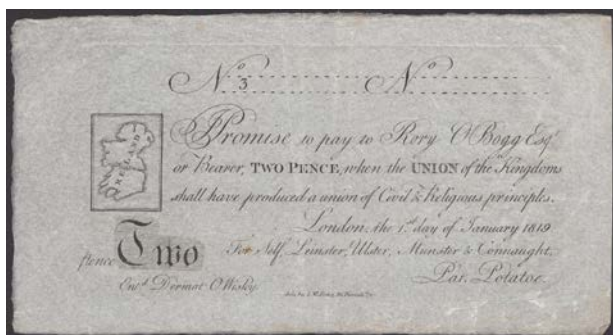 No. 3 No.
IRELAND
Promise to pay to Rory O'Bogg Esqr.
or Bearer, TWO PENCE, when the UNION of the Kingdoms
shall have produced a union of Civil & Religious principles.
London, the 1st. day of January 1819
For Self, Leinster, Ulster, Munster & Connaught,
pence Two
Pat. Potatoe.
Entd. Dermot O'Wisky.